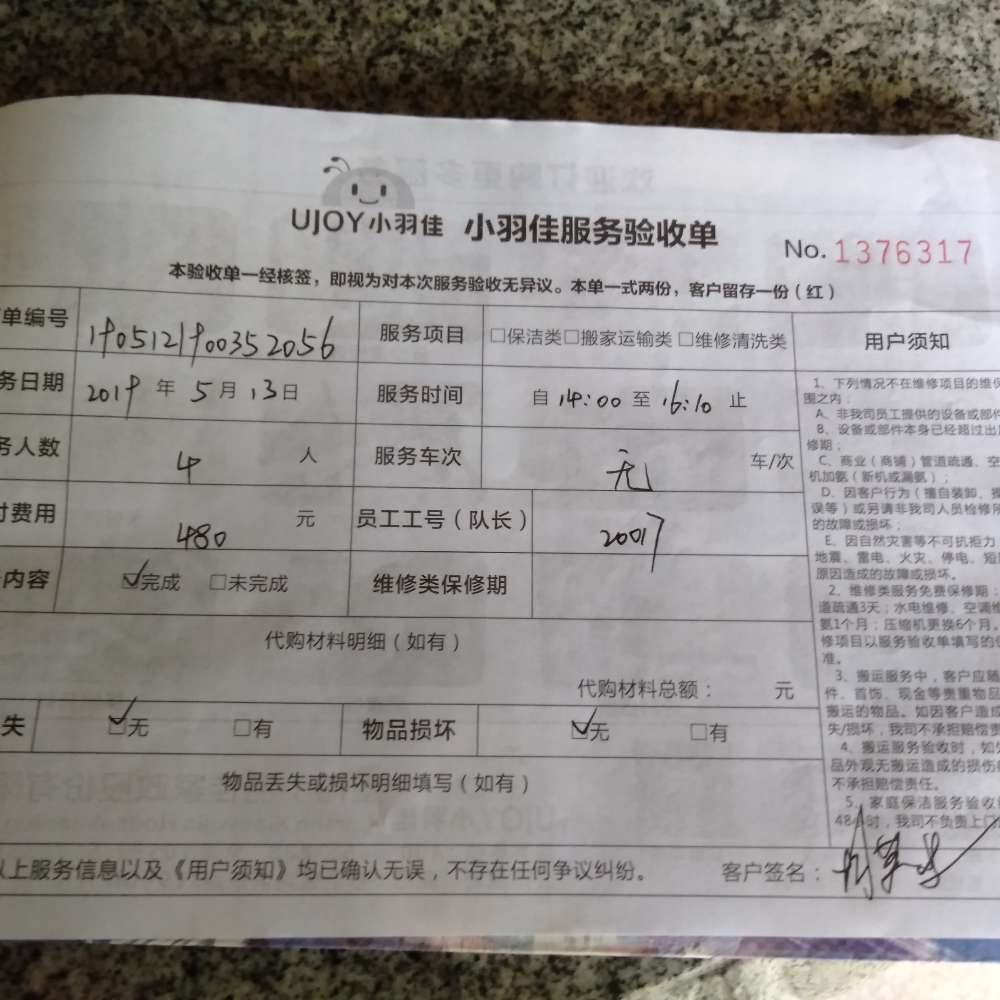 UJOY小羽佳 小羽佳服务验收单 No. 1376317
本验收单一经核签，即视为对本次服务验收无异议。本单一式两份，客户留存一份（红）
单编号 190512190035 2056 服务项目 □保洁类□搬家运输类 □维修清洗类
务日期 2019 年 5 月 13 日 服务时间 自 14:00 至 16:10 止
务人数 4 人 服务车次 无 车/次
付费用 480 元 员工工号（队长） 20017
内容 ☑完成 □未完成 维修类保修期
代购材料明细（如有）
代购材料总额： 元
失 ☑无 □有 物品损坏 ☑无 □有
物品丢失或损坏明细填写（如有）
以上服务信息以及《用户须知》均已确认无误，不存在任何争议纠纷。 客户签名：
用户须知
1、下列情况不在维修项目的维保
围之内：
A、非我司员工提供的设备或部件
B、设备或部件本身已经超过出
修期；
C、商业（商铺）管道疏通、空
机加氨（新机或漏氨）；
D、因客户行为（擅自装卸、操
误等）或另请非我司人员检修所
的故障或损坏；
E、因自然灾害等不可抗拒力
地震、雷电、火灾、停电、短
原因造成的故障或损坏。
2、维修类服务免费保修期：
道疏通3天；水电维修、空调维
氨1个月；压缩机更换6个月。
修项目以服务验收单填写的
准。
3、搬运服务中，客户应随
件、首饰、现金等贵重物品
搬运的物品。如因客户造成
失/损坏，我司不承担赔偿责
4、搬运服务验收时，如
品外观无搬运造成的损伤
不承担赔偿责任。
5、家庭保洁服务验收
48小时，我司不负责上门